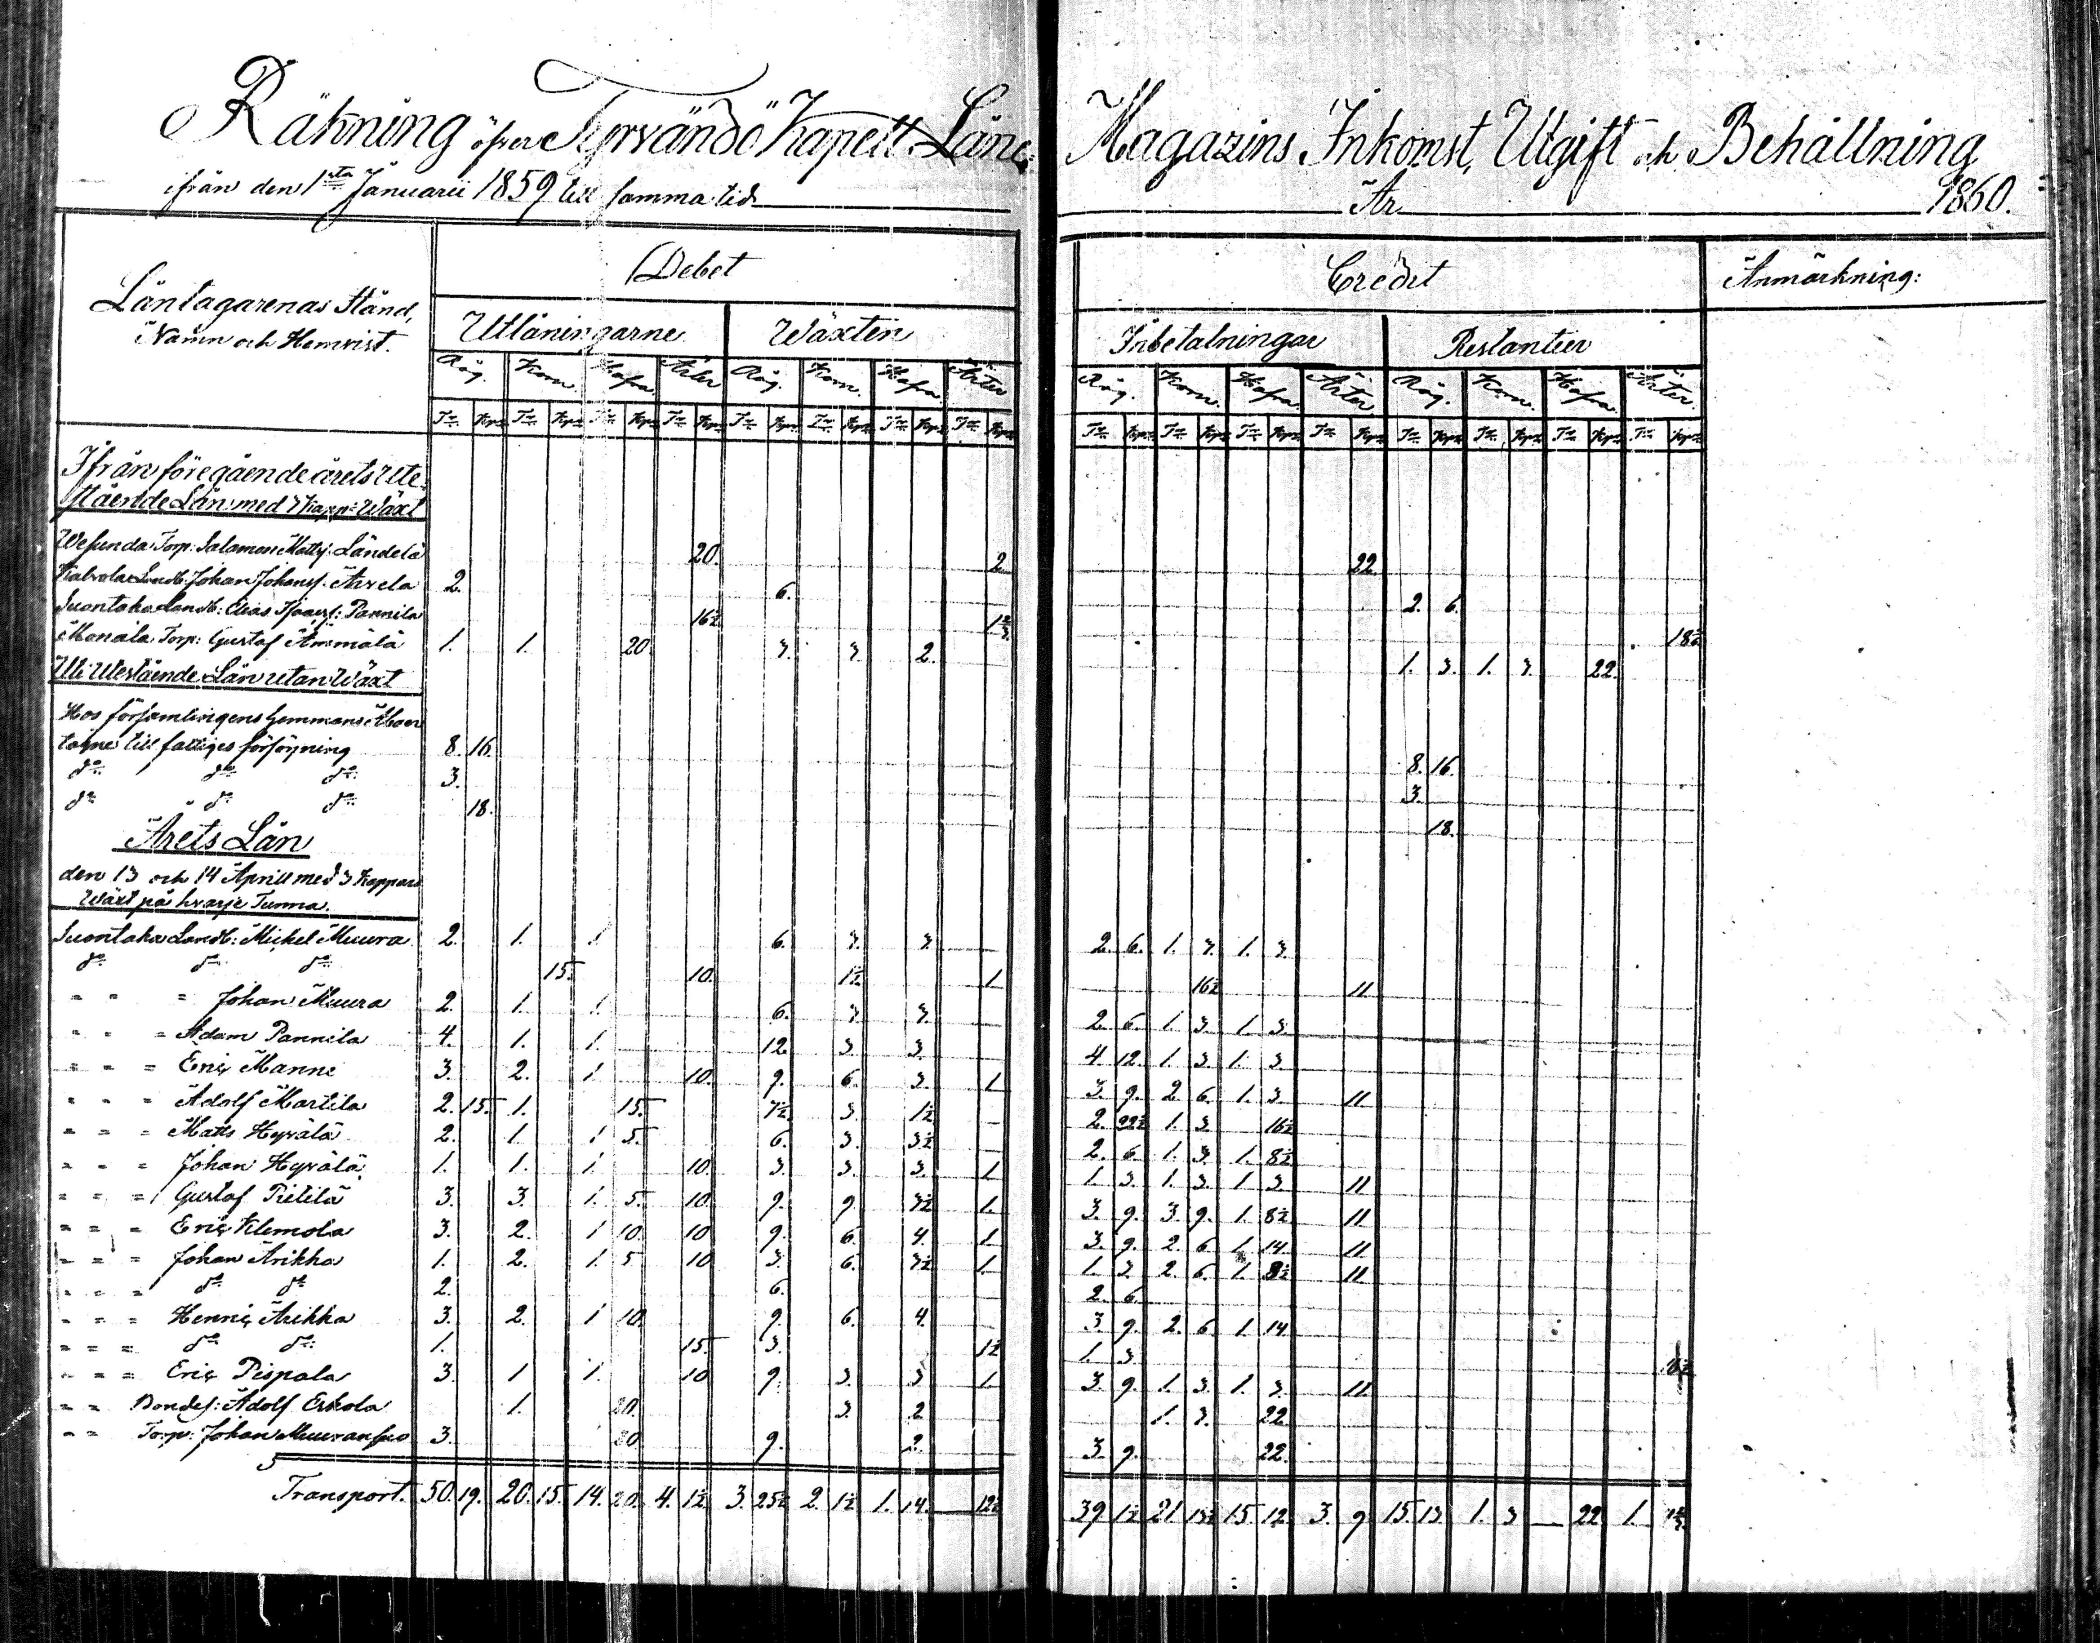 Räkning öfver Tyrvändö Kapell Låne Magazins Inkomst, Utgift och Behållning
ifrån den 1sta Januarii 1859 till samma tid År 1860.
Låntagarenas Stånd, Namn och Hemvist.
Debet
Credit
Anmärkning:
Utlåningarne Wäxten Inbetalningar Restantier
Råg. Korn. Hafra. Ärter Råg. Korn. Hafra. Ärter Råg. Korn. Hafra. Ärter Råg. Korn. Hafra. Ärter.
Tr Kpr Tr Kpr Tr Kpr Tr Kpr Tr Kpr Tr Kpr Tr Kpr Tr Kpr Tr Kpr Tr Kpr Tr Kpr Tr Kpr Tr Kpr Tr Kpr Tr Kpr Tr Kpr
Ifrån föregående årets Ute-
stående Lån med 3 Kapp: Wäxt
Wesunda Torp: Salomon Matts: Ländelä 20. 2 22.
Landb: Johan Johanss. Arvela 2. 6. 2. 6.
Suontaka Landb: Elias Pannila 16½ 1½ 18½
Monåla Torp: Gustaf Ämmälä 1. 1. 20. 3. 3. 2. 1. 3. 1. 3. 22.
Utestående Lån utan Wäxt
Hos församlingens Hemmans
till fattiges försörjning 8. 16. 8. 16.
do do do 3. 3.
do do do 18. 18.
Årets Lån
den 13 och 14 Aprill med 3 Kappars
Wäxt på hvarje Tunna.
Suontaka Landb: Michel Muura 2. 1. 1. 6. 3. 3. 2. 6. 1. 3. 1. 3.
do do do 15. 10. 1½ 1 16½ 11
" " " Johan Muura 2. 1. 1. 6. 3. 3. 2. 6. 1. 3. 1. 3.
" " " Adam Pannila 4. 1. 1. 12. 3. 3. 4. 12. 1. 3. 1. 3
" " " Eric Manni 3. 2. 1 10. 9. 6. 3. 1 3. 9. 2. 6. 1. 3. 11.
" " " Adolf Martila 2. 15. 1. 15. 7½ 3. 1½ 2. 22½ 1. 3. 16½
" " " Matts Hyrälä 2. 1. 1 5. 6. 3. 3½ 2. 6 1. 3. 1. 8½
" " " Johan Hyrälä 1. 1. 1 10. 3. 3. 3. 1 1. 3. 1. 3. 1 3 11
" " " Gustaf Pietilä 3. 3. 1. 5. 10. 9. 9. 3½ 1. 3. 9. 3. 9. 1. 8½ 11
" " " Eric Klemola 3. 2. 1 10. 10 9. 6. 4. 1 3. 9. 2. 6 1. 14. 11.
" " " Johan Arikka 1. 2. 1. 5 10 3. 6. 3½ 1. 1. 3. 2. 6. 1. 8½ 11
" " " do do 2. 6. 2. 6.
" " " Henric Arikka 3. 2. 1 10. 9. 6. 4. 3. 9. 2. 6 1. 14
" " " do do 1. 15. 3. 1½ 1. 3. 16½
" " " Eric Pispala 3. 1 1. 10 9. 3. 3 1. 3. 9. 1. 3. 1. 3. 11
" " Bondes: Adolf Eskola 1. 20. 3. 2 1. 3. 22
" " Torp: Johan Muuransuo 3. 20 9. 2. 3. 9. 22.
Transport. 50. 19. 20. 15. 14. 20. 4. 1½ 3. 25½ 2. 1½ 1. 14. — 12½ 39 1½ 21 13½ 15. 12. 3. 9 15. 13 1. 3 — 22 1.